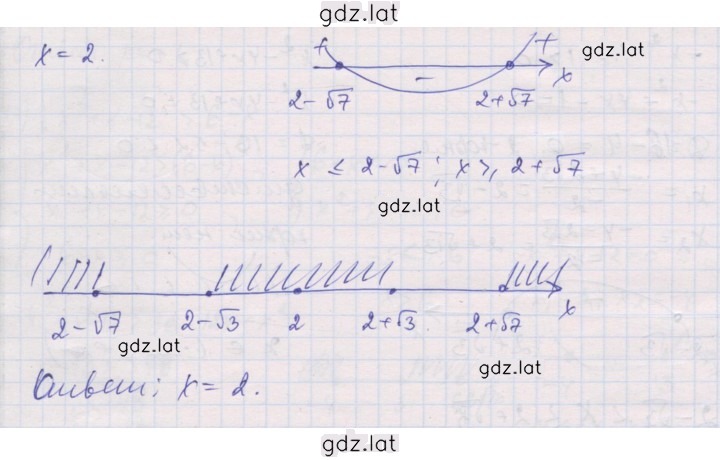 gdz.lat
x = 2.
+ - +
gdz.lat
x
2-√7 2+√7
x ≤ 2-√7 ; x ≥ 2+√7
gdz.lat
2-√7 2-√3 2 2+√3 2+√7 x
gdz.lat
gdz.lat
Ответ: x = 2.
gdz.lat